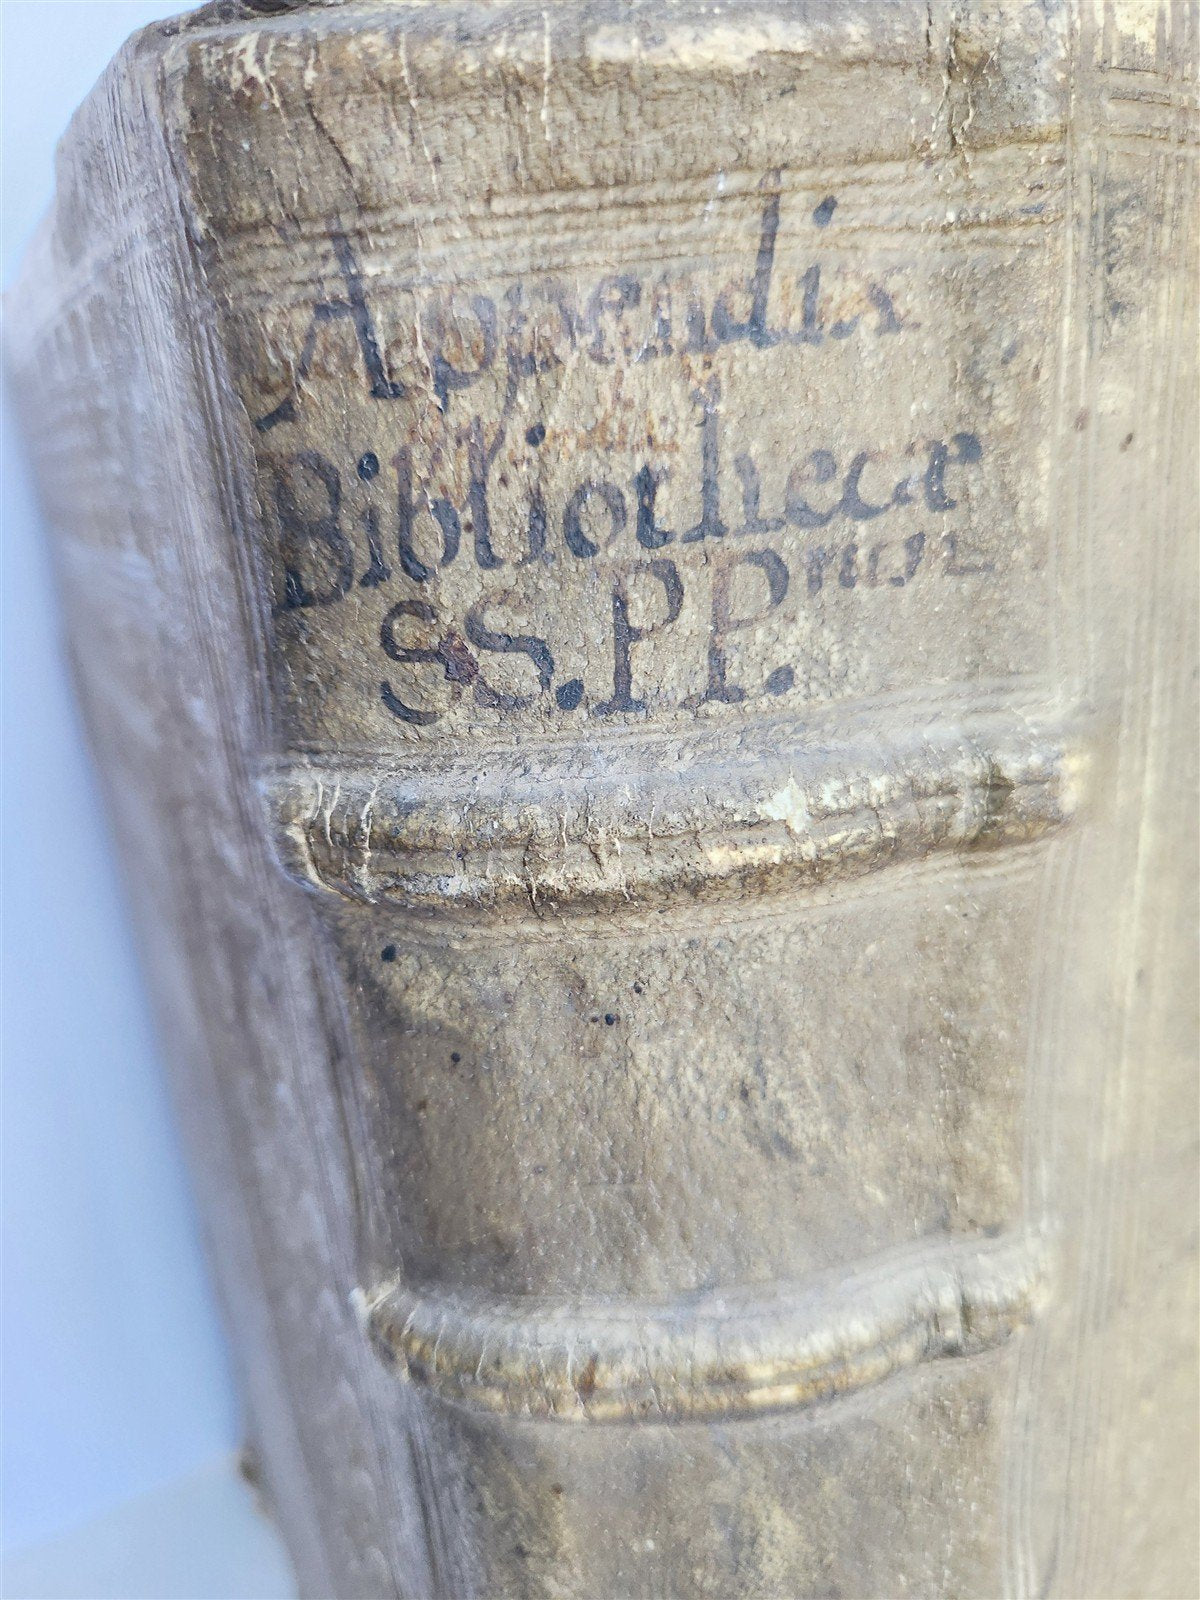 Appendix
Bibliothecæ
SS. PP.